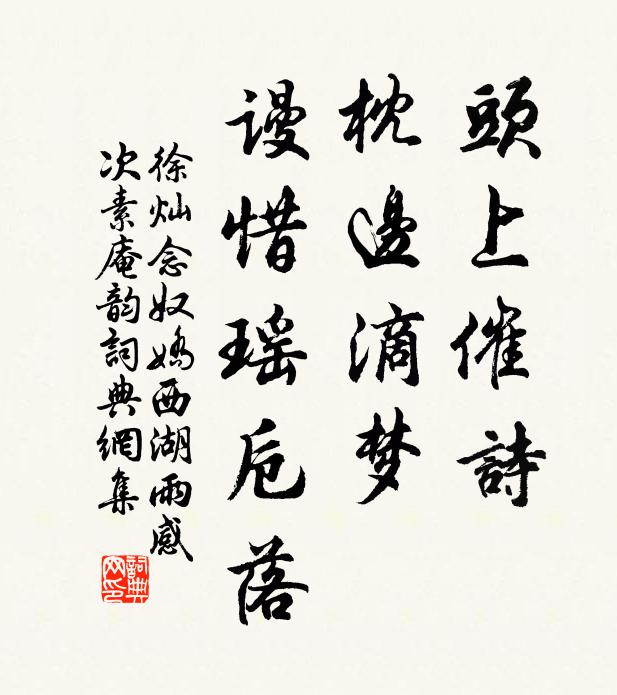 頭上催詩
枕邊滴梦
谩惜瑶卮落
徐灿念奴嬌西湖雨感
次素庵韵詞典網集
詞典网印